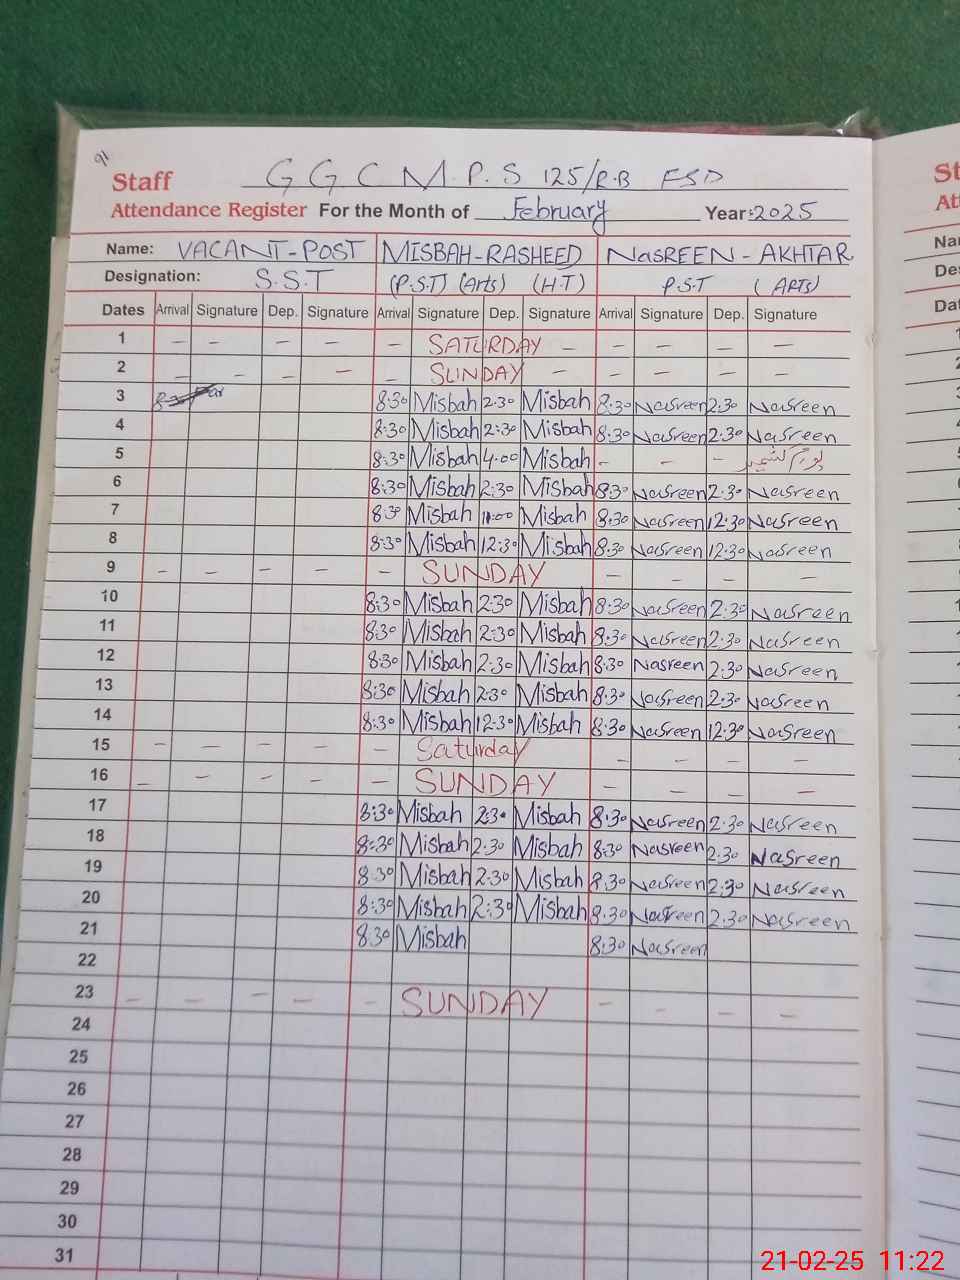 91
Staff G G C M.P.S 125/R.B FSD
Attendance Register For the Month of February Year:2025
Name: VACANT-POST MISBAH-RASHEED NASREEN-AKHTAR
Designation: S.S.T (P.S.T) (Arts) (H.T) P.S.T (ARTS)
Dates Arrival Signature Dep. Signature Arrival Signature Dep. Signature Arrival Signature Dep. Signature
1 – – – – – SATURDAY – – – – –
2 – – – – – SUNDAY – – – – –
3 8:30 Misbah 2:30 Misbah 8:30 Nasreen 2:30 Nasreen
4 8:30 Misbah 2:30 Misbah 8:30 Nasreen 2:30 Nasreen
5 8:30 Misbah 4:00 Misbah – – – یوم کشمیر
6 8:30 Misbah 2:30 Misbah 8:30 Nasreen 2:30 Nasreen
7 8:30 Misbah 11:00 Misbah 8:30 Nasreen 12:30 Nasreen
8 8:30 Misbah 12:30 Misbah 8:30 Nasreen 12:30 Nasreen
9 – – – – – SUNDAY – – – –
10 8:30 Misbah 2:30 Misbah 8:30 Nasreen 2:30 Nasreen
11 8:30 Misbah 2:30 Misbah 8:30 Nasreen 2:30 Nasreen
12 8:30 Misbah 2:30 Misbah 8:30 Nasreen 2:30 Nasreen
13 8:30 Misbah 2:30 Misbah 8:30 Nasreen 2:30 Nasreen
14 8:30 Misbah 12:30 Misbah 8:30 Nasreen 12:30 Nasreen
15 – – – – – Saturday – – – –
16 – – – – – SUNDAY – – – –
17 8:30 Misbah 2:30 Misbah 8:30 Nasreen 2:30 Nasreen
18 8:30 Misbah 2:30 Misbah 8:30 Nasreen 2:30 Nasreen
19 8:30 Misbah 2:30 Misbah 8:30 Nasreen 2:30 Nasreen
20 8:30 Misbah 2:30 Misbah 8:30 Nasreen 2:30 Nasreen
21 8:30 Misbah 8:30 Nasreen
22
23 – – – – – SUNDAY – – – –
24
25
26
27
28
29
30
31
21-02-25 11:22